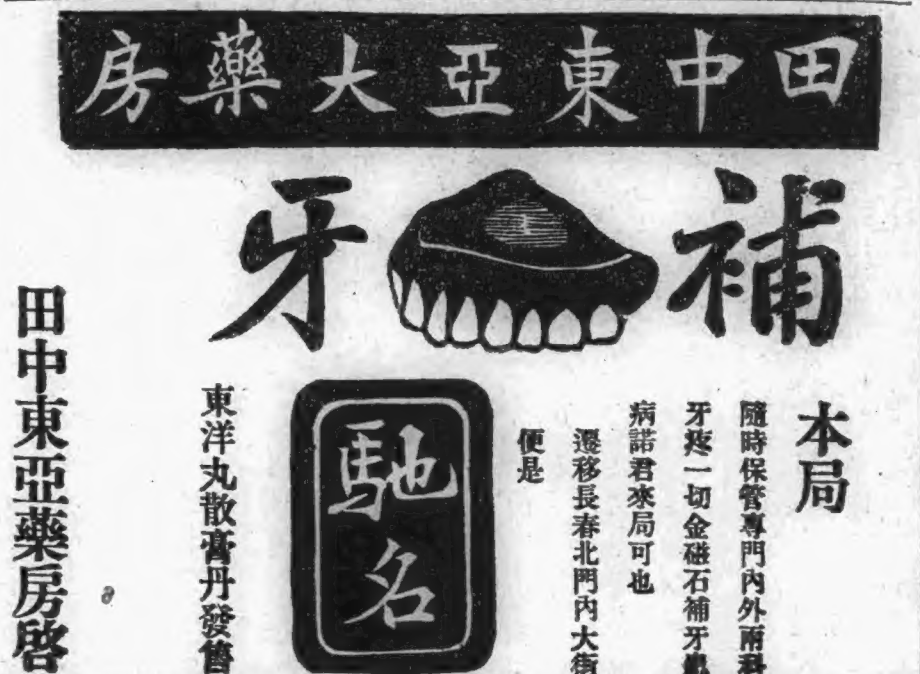 田中東亞大藥房
補牙
本局
隨時保管專門內外兩科
牙疼一切金磁石補牙
病諾君來局可也
遷移長春北門內大街
便是
馳名
東洋丸散膏丹發售
田中東亞藥房啓